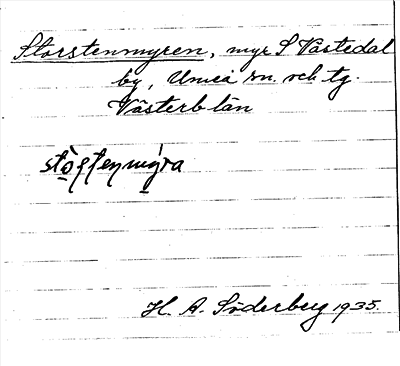 Storstenmyren, myr S Västedal
by, Umeå sn. och tg.
Västerb län
H. A. Söderberg 1935.